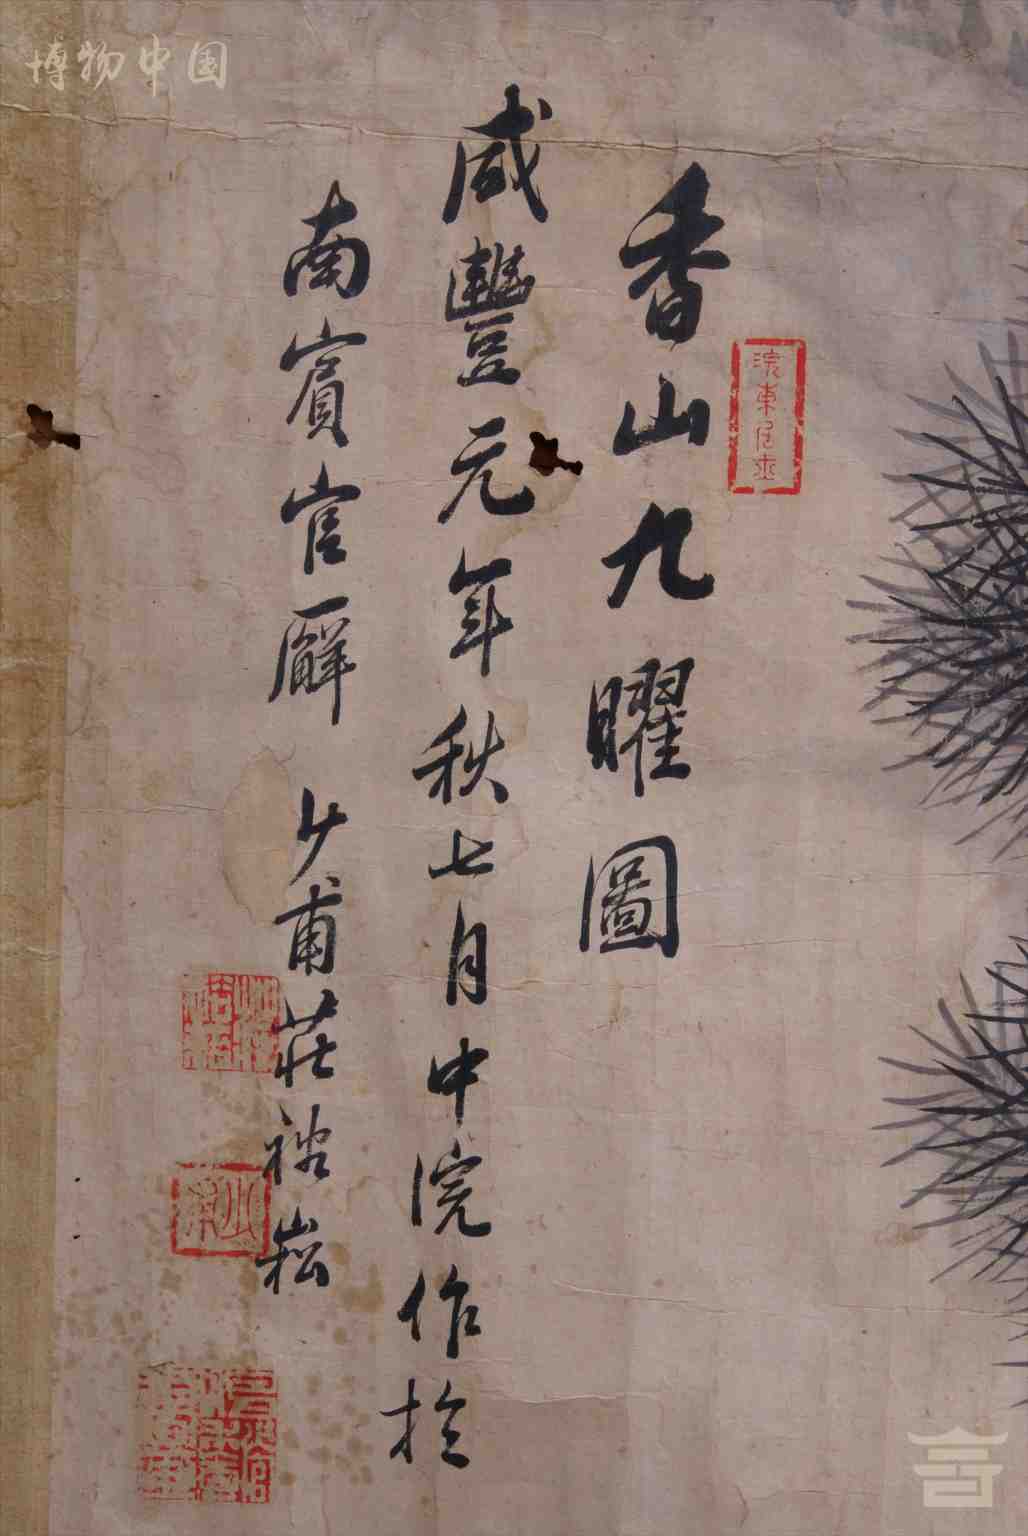 香山九曜圖
咸豐元年秋七月中浣作於
南賓官廨 少甫莊裕崧
博物中国